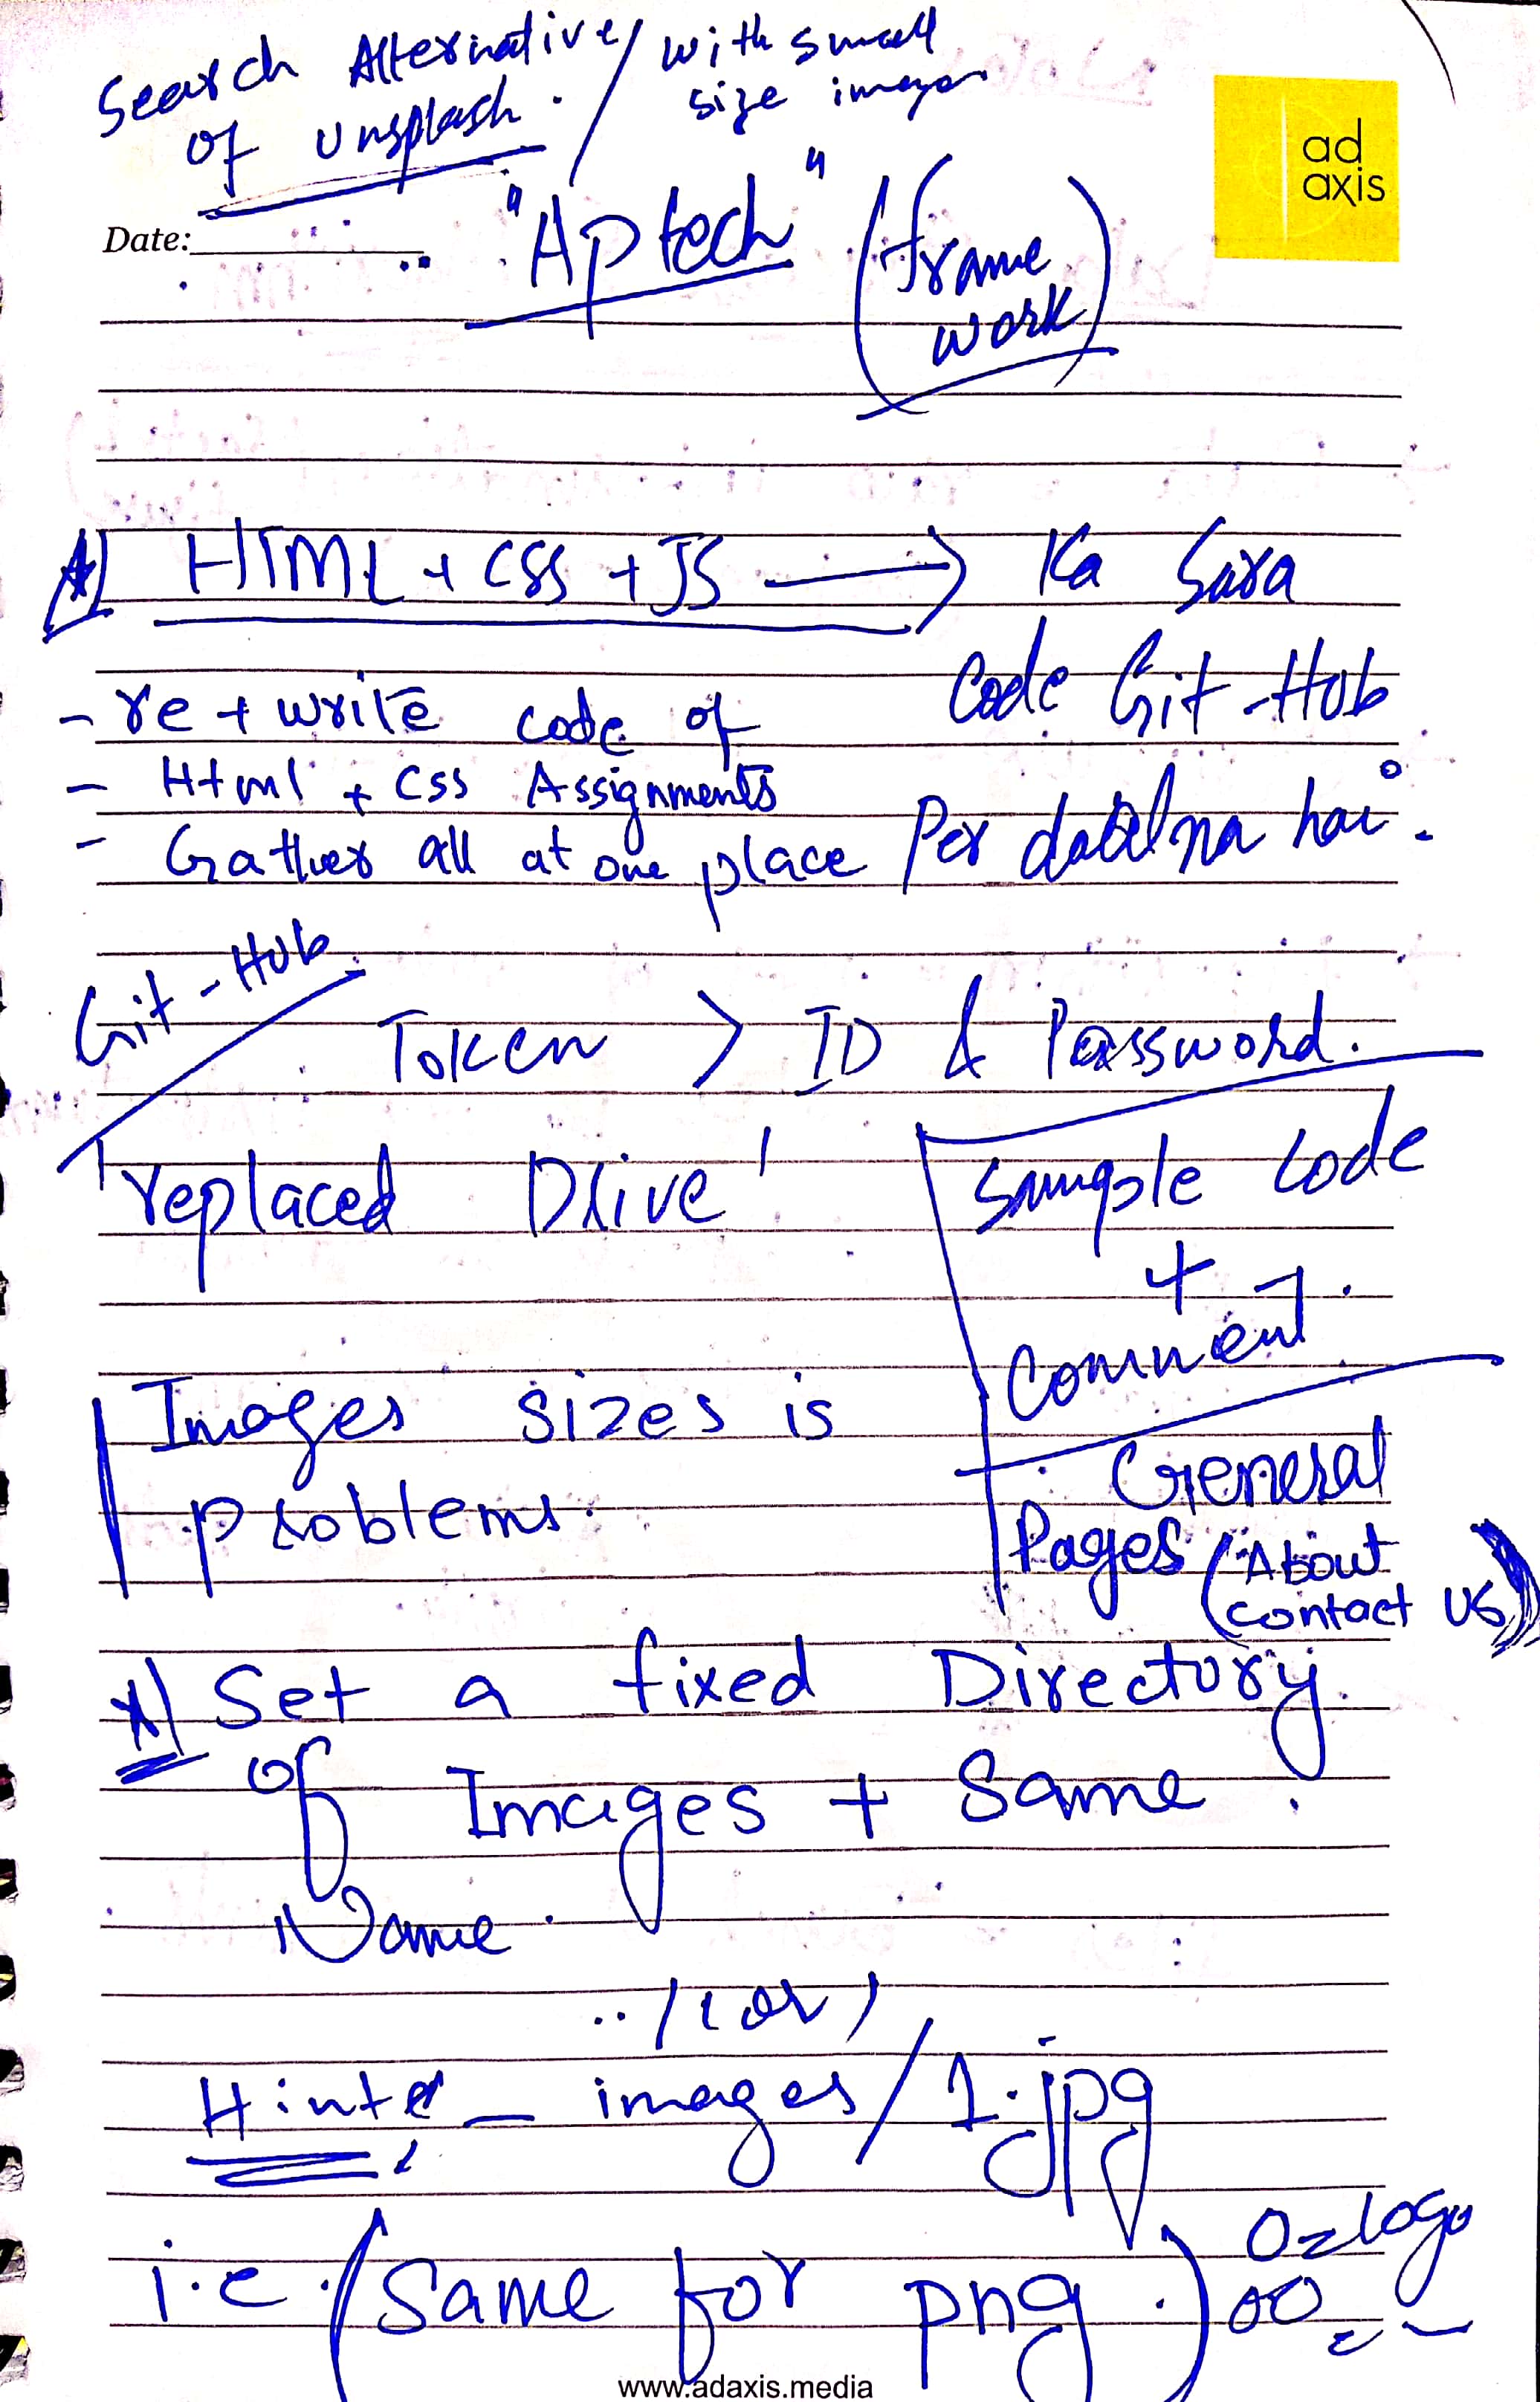 Search Alternative / with small
of Unsplash. size images
ad
axis
Date:
"Aptech" (frame
work)
A) HTML + CSS + JS → Ka Sara
Code Git-Hub
- re + write code of
- Html + Css Assignments
- Gather all at one place Per daalna hai.
Git-Hub
Token > ID & Password.
'replaced Drive'
Sample Code
+
Comment.
Images sizes is
problems.
General
Pages (About
contact us)
*) Set a fixed Directory
of Images + Same
Name.
(or)
Hint - images/1.jpg
i.e (Same for png.)
0=logo
00
www.adaxis.media